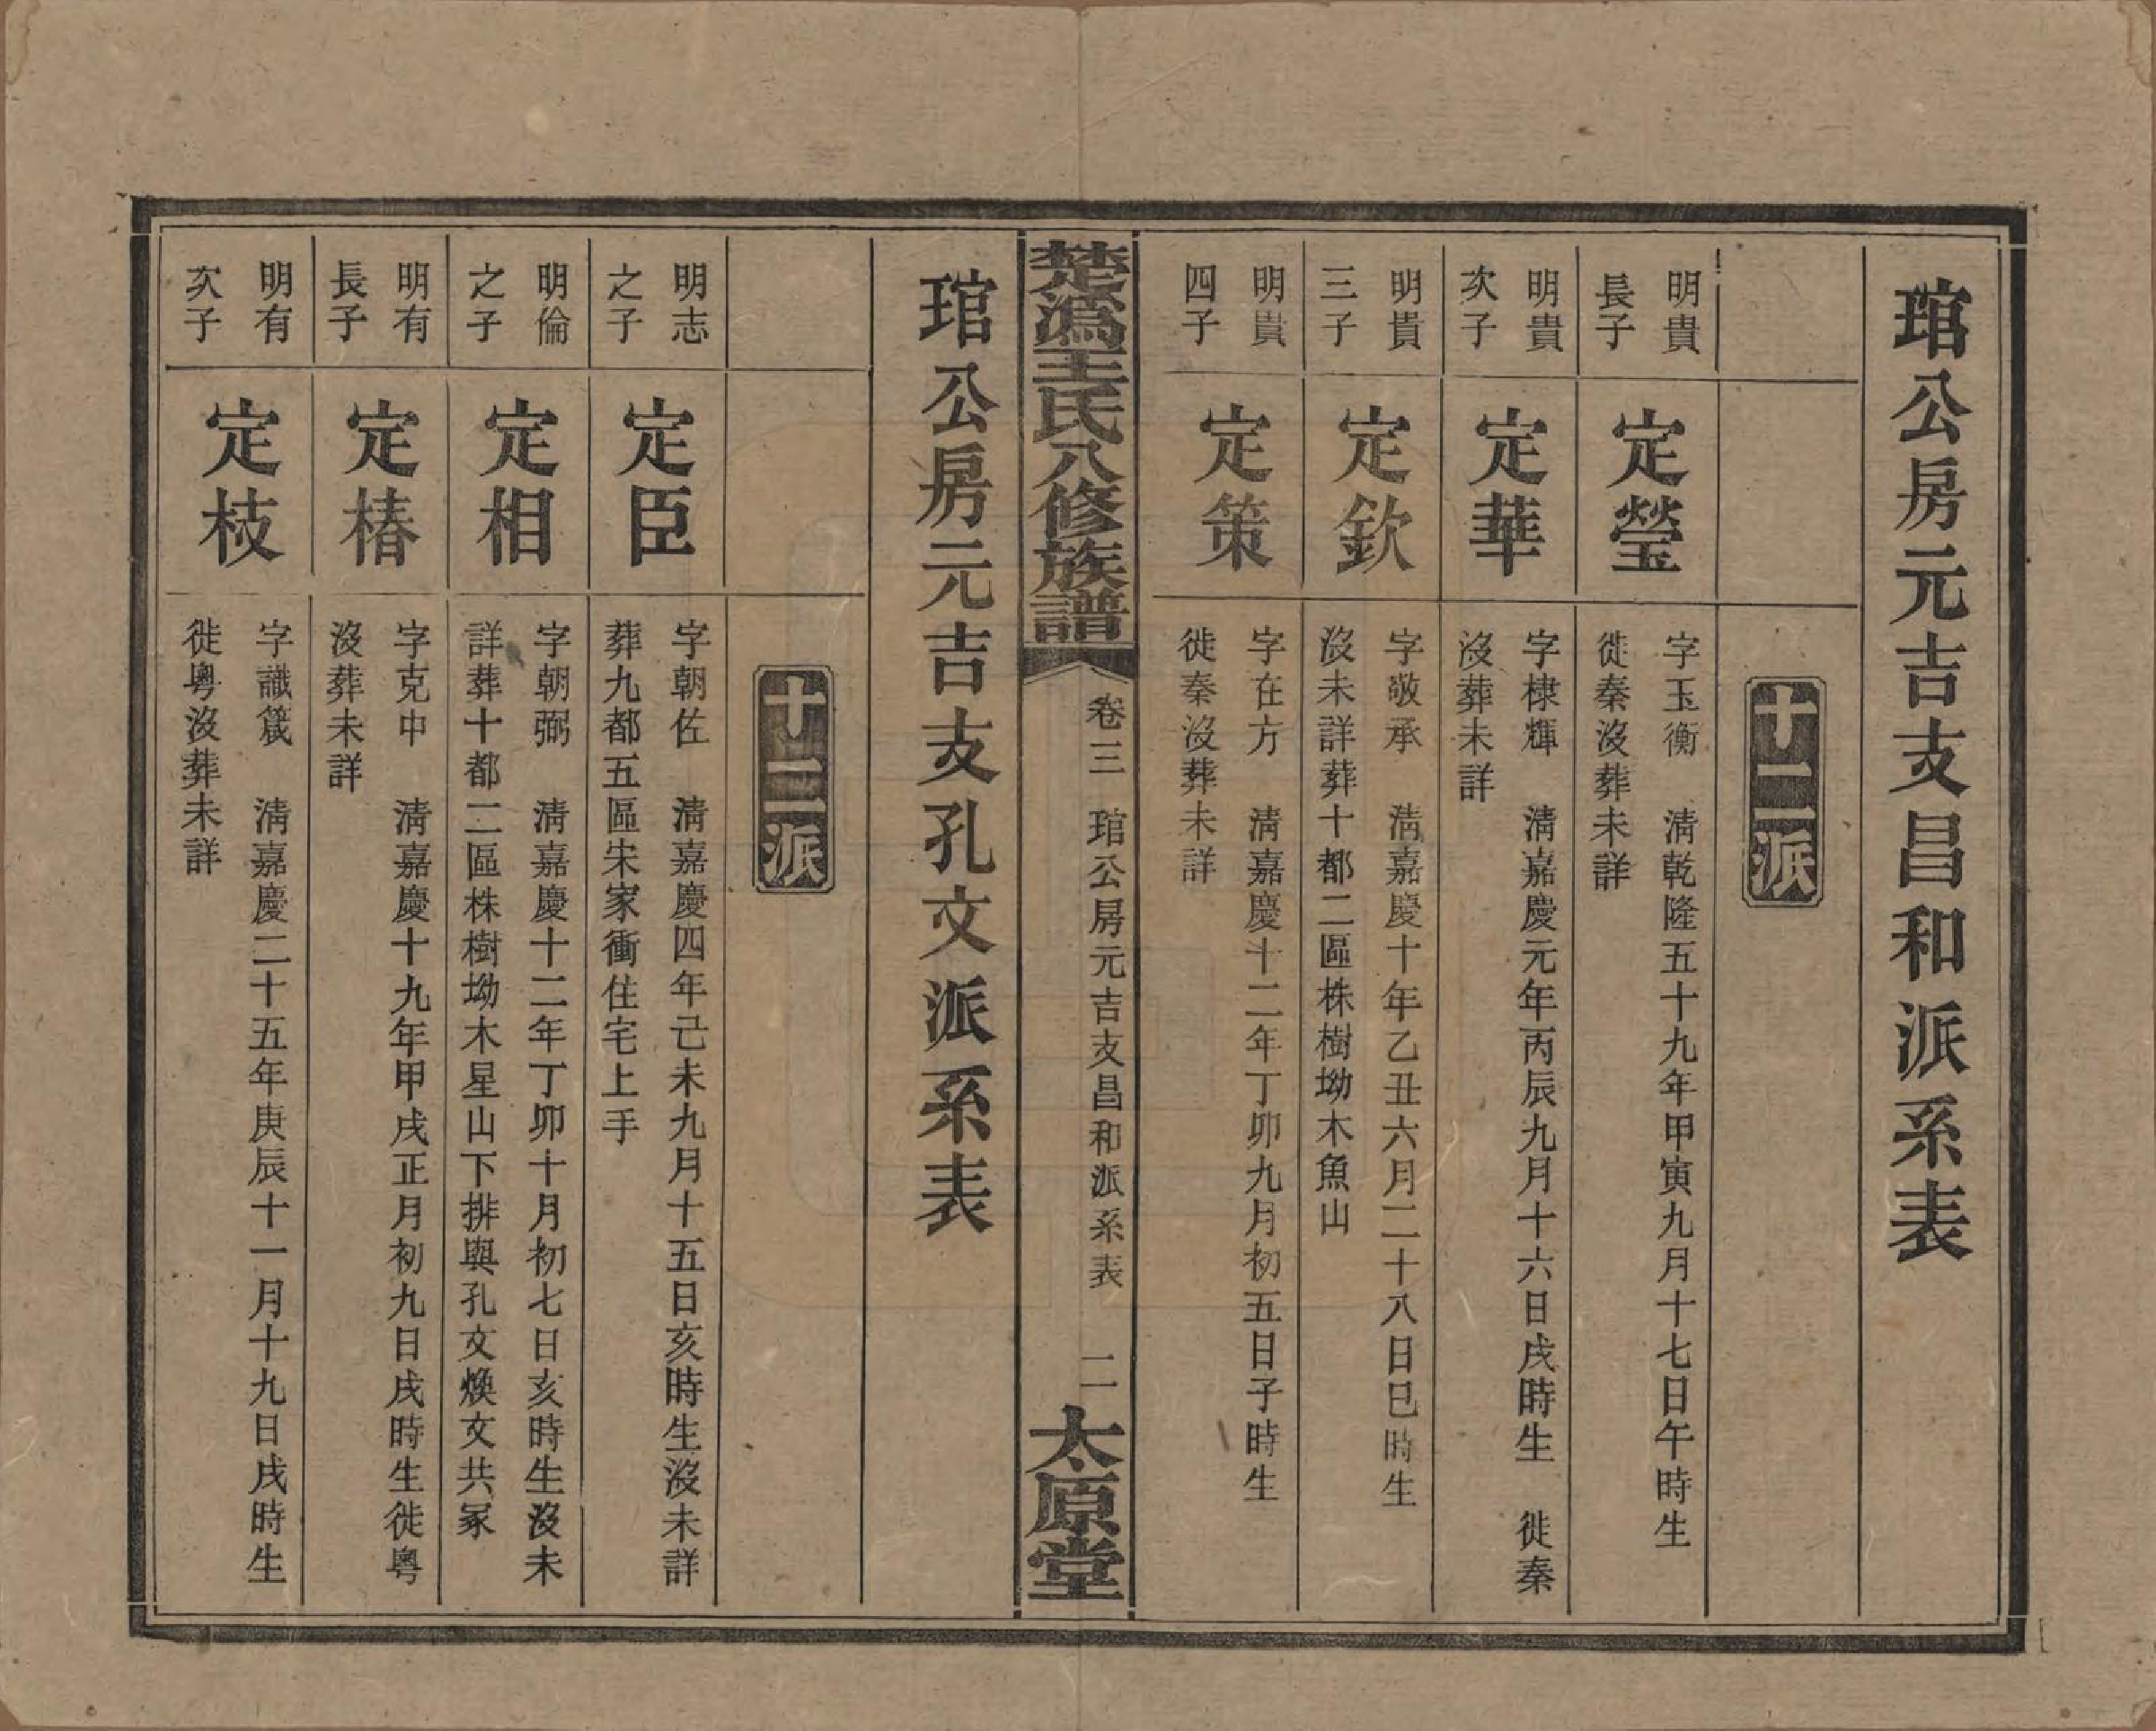 琯公房元吉支昌和派系表
十二派
明貴
長子
定瑩
字玉衡　淸乾隆五十九年甲寅九月十七日午時生
徙秦沒葬未詳
明貴
次子
定華
字棣輝　淸嘉慶元年丙辰九月十六日戌時生　徙秦
沒葬未詳
明貴
三子
定欽
字敬承　淸嘉慶十年乙丑六月二十八日巳時生
沒未詳葬十都二區株樹坳木魚山
明貴
四子
定策
字在方　淸嘉慶十二年丁卯九月初五日子時生
徙秦沒葬未詳
楚溈王氏八修族譜
卷三　琯公房元吉支昌和派系表　二
太原堂
琯公房元吉支孔文派系表
十二派
明志
之子
定臣
字朝佐　淸嘉慶四年己未九月十五日亥時生沒未詳
葬九都五區朱家衝住宅上手
明倫
之子
定相
字朝弼　淸嘉慶十二年丁卯十月初七日亥時生沒未
詳葬十都二區株樹坳木星山下排與孔文煥文共冢
明有
長子
定椿
字克中　淸嘉慶十九年甲戌正月初九日戌時生徙粵
沒葬未詳
明有
次子
定枝
字識箴　淸嘉慶二十五年庚辰十一月十九日戌時生
徙粵沒葬未詳